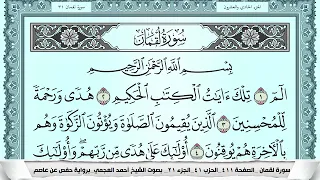 الجزء الحادي والعشرون
سورة لقمان ٣١
سُورَةُ لُقْمَانَ
بِسْمِ اللَّهِ الرَّحْمَٰنِ الرَّحِيمِ
الٓمٓ ١ تِلْكَ ءَايَٰتُ ٱلْكِتَٰبِ ٱلْحَكِيمِ ٢ هُدًى وَرَحْمَةً
لِّلْمُحْسِنِينَ ٣ ٱلَّذِينَ يُقِيمُونَ ٱلصَّلَوٰةَ وَيُؤْتُونَ ٱلزَّكَوٰةَ وَهُم
بِٱلْءَاخِرَةِ هُمْ يُوقِنُونَ ٤ أُو۟لَٰٓئِكَ عَلَىٰ هُدًى مِّن رَّبِّهِمْ وَأُو۟لَٰٓئِكَ
سورة لقمان الصفحة ٤١١ الحزب ٤١ الجزء ٢١ بصوت الشيخ أحمد العجمي برواية حفص عن عاصم